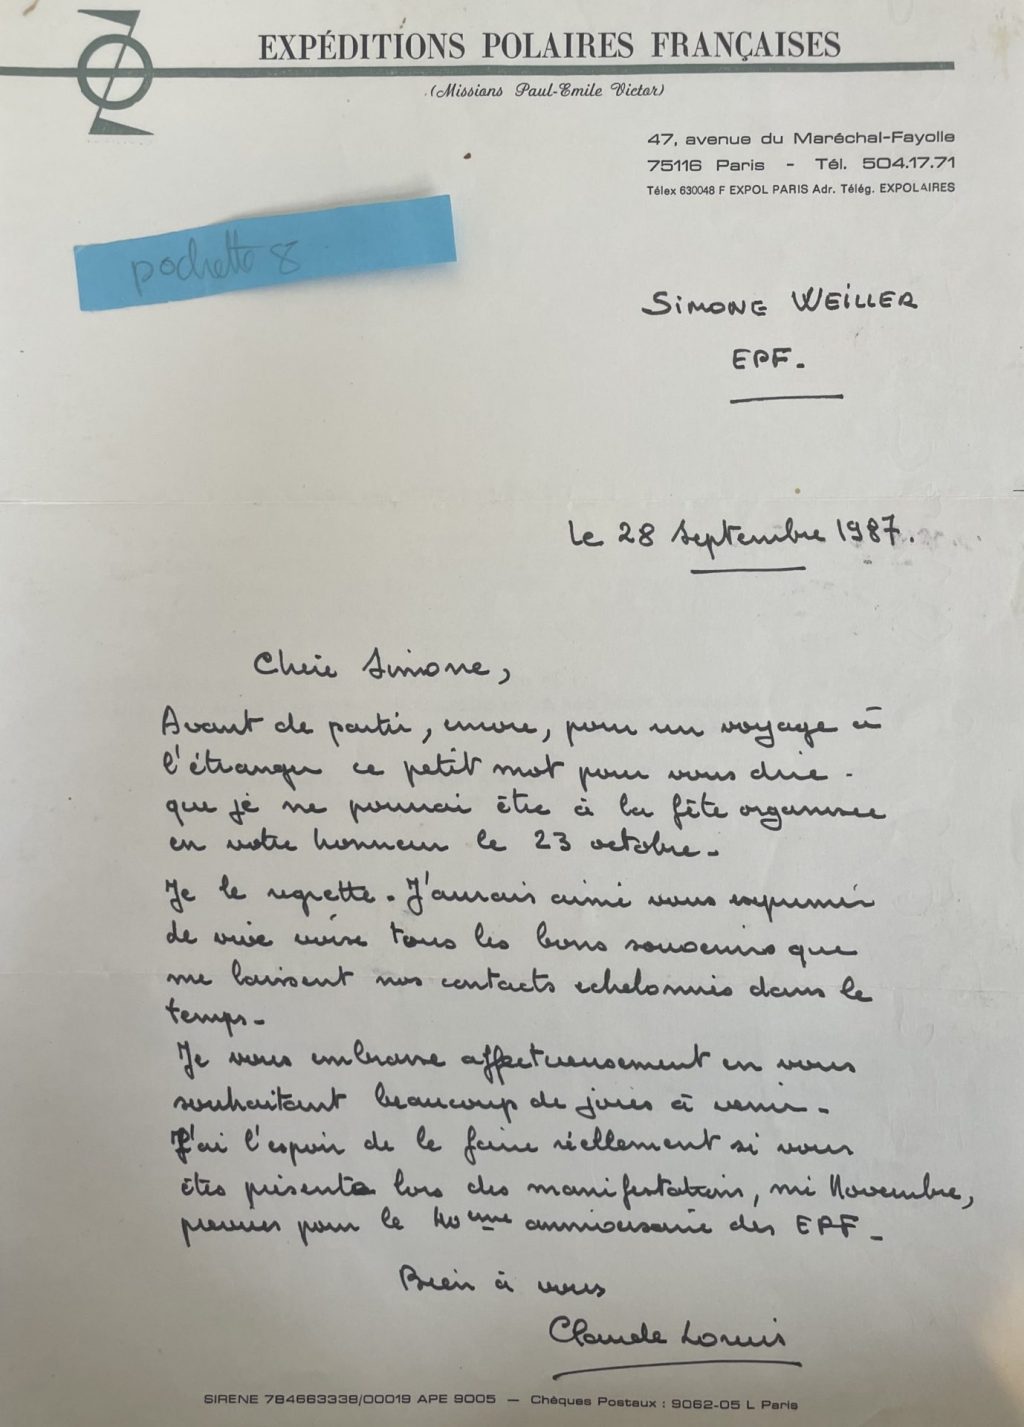 EXPÉDITIONS POLAIRES FRANÇAISES
(Missions Paul-Emile Victor)
47, avenue du Maréchal-Fayolle
75116 Paris - Tél. 504.17.71
Télex 630048 F EXPOL PARIS Adr. Télég. EXPOLAIRES
pochette 8
Simone WEILLER
EPF.
le 28 Septembre 1987.
Chère Simone,
Avant de partir, encore, pour un voyage à
l'étranger ce petit mot pour vous dire -
que je ne pourrai être à la fête organisée
en votre honneur le 23 octobre -
Je le regrette. J'aurais aimé vous exprimer
de vive voix tous les bons souvenirs que
me laissent nos contacts echelonnés dans le
temps -
Je vous embrasse affectueusement en vous
souhaitant beaucoup de joies à venir -
J'ai l'espoir de le faire réellement si vous
êtes présente lors des manifestations, mi Novembre,
prévues pour le 40ème anniversaire des EPF -
Bien à vous
Claude Lorius
SIRENE 784663338/00019 APE 9005 — Chèques Postaux : 9062-05 L Paris